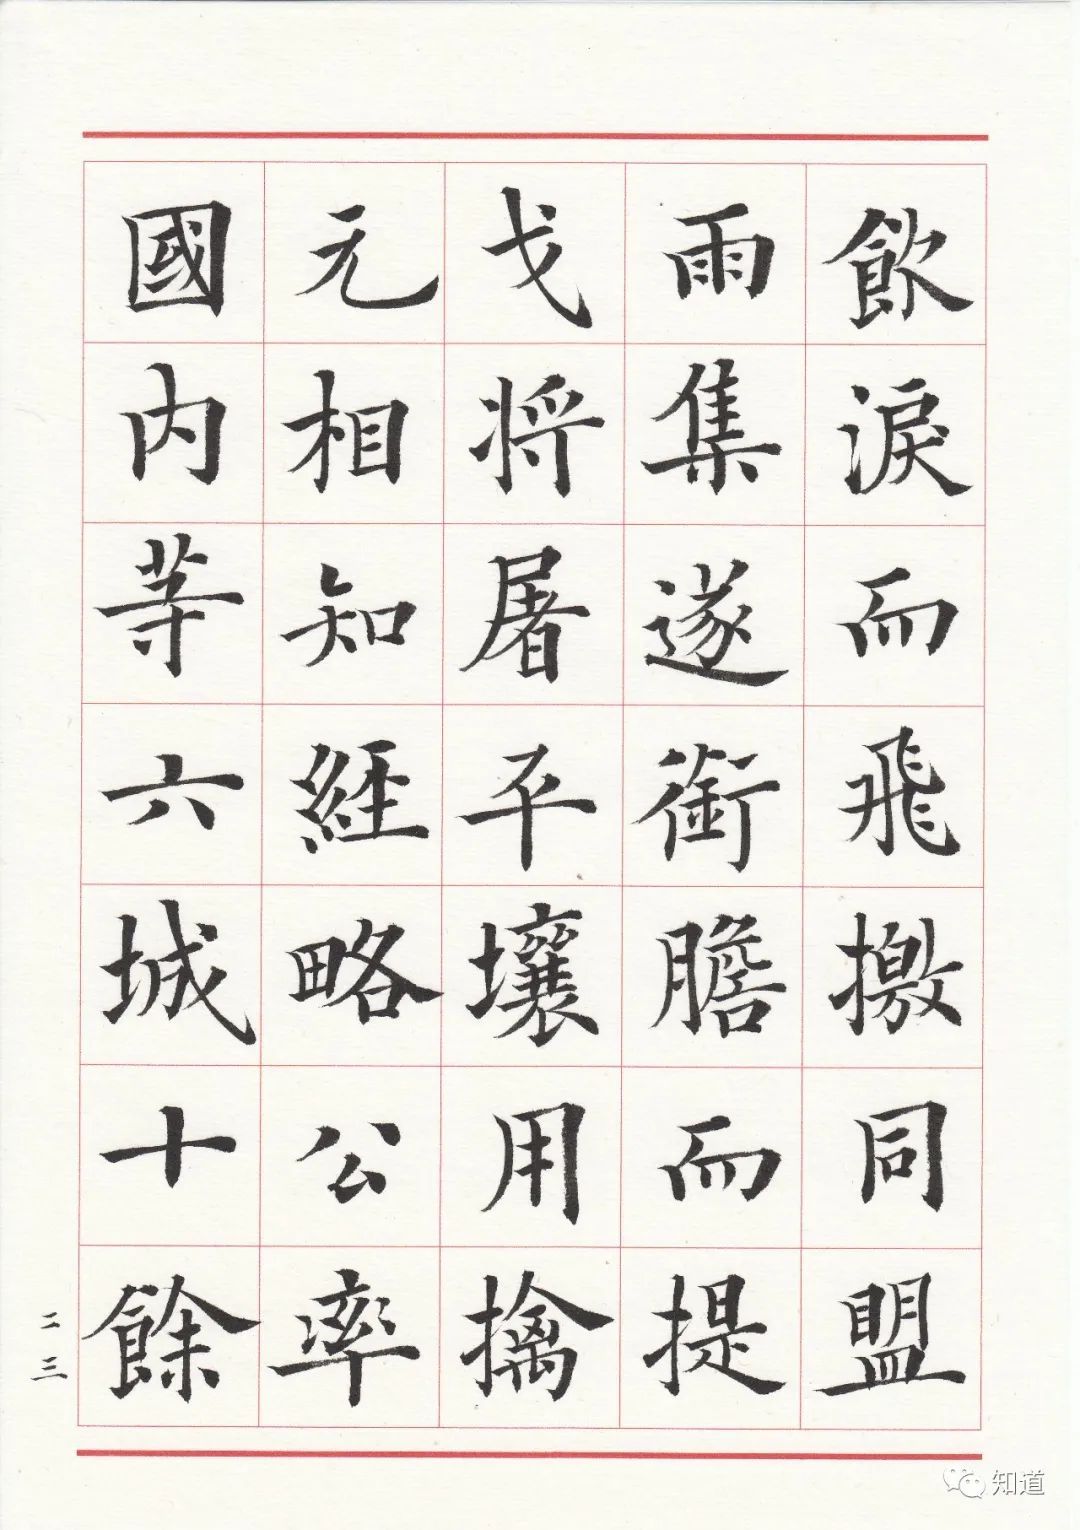 飲淚而飛撽同盟
雨集遂銜膽而提
戈将屠平壤用擒
元相知經略公率
國内等六城十餘
二三
知道